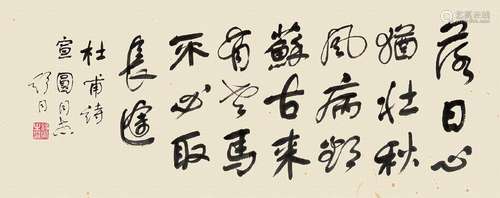 落日心
猶壯秋
風病欲
蘇古來
存老馬
不必取
長途
杜甫詩
宣圓同志
舒同